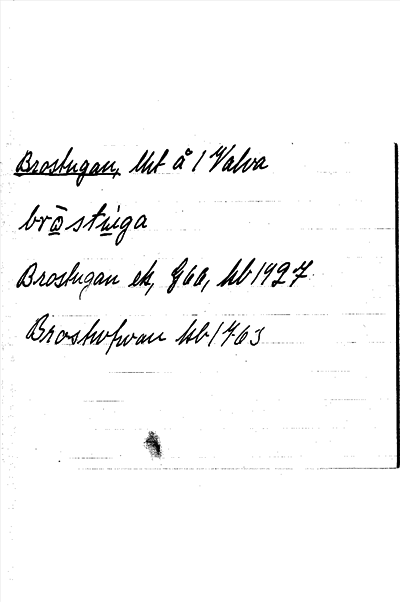 Brostugan, lht å 1 Valva
brōstuga
Brostugan ek, G66, hb 1927
Brostufwan hb 1763